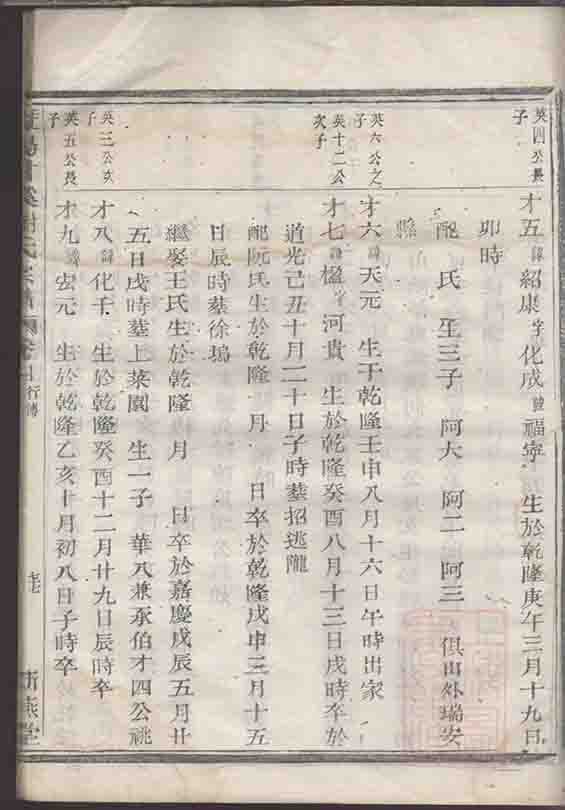 英四公長子
才五諱紹康字化成號福寧 生於乾隆庚午三月十九日
卯時
配 氏 生三子 阿大 阿二 阿三 俱出外瑞安
縣
英六公之子
才六諱天元 生于乾隆壬申八月十六日午時出家
英十二公次子
才七諱楹字河貴 生於乾隆癸酉八月十三日戌時卒於
道光己丑十月二十日子時墓招逃隴
配阮氏生於乾隆 月 日卒於乾隆戊申三月十五
日辰時墓徐塢
繼娶王氏生於乾隆 月 日卒於嘉慶戊辰五月廿
五日戌時墓上菜園 生一子 華八兼承伯才四公祧
英三公次子
才八諱化千 生於乾隆癸酉十二月廿九日辰時卒
英五公長子
才九諱宏元 生於乾隆乙亥十月初八日子時卒
氏宗譜 行傳